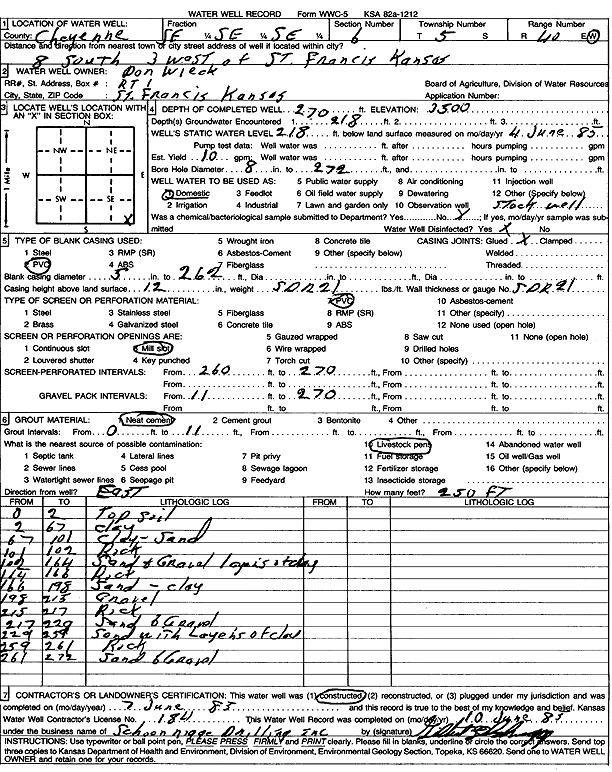 WATER WELL RECORD Form WWC-5 KSA 82a-1212
1 LOCATION OF WATER WELL: Fraction Section Number Township Number Range Number
County: Cheyenne SE ¼ SE ¼ SE ¼ 6 T 5 S R 40 E/W
Distance and direction from nearest town or city street address of well if located within city?
8 South 3 west of ST. Francis Kansas
2 WATER WELL OWNER: Don Wieck
RR#, St. Address, Box # : RT 1 Board of Agriculture, Division of Water Resources
City, State, ZIP Code : ST. Francis Kansas Application Number:
3 LOCATE WELL'S LOCATION WITH AN "X" IN SECTION BOX:
N
NW NE
W E
SW SE
X
S
1 Mile
4 DEPTH OF COMPLETED WELL 270 ft. ELEVATION: 3500
Depth(s) Groundwater Encountered 1. 218 ft. 2. ft. 3. ft.
WELL'S STATIC WATER LEVEL 218 ft. below land surface measured on mo/day/yr 4 June 83
Pump test data: Well water was ft. after hours pumping gpm
Est. Yield 10 gpm: Well water was ft. after hours pumping gpm
Bore Hole Diameter 8 in. to 272 ft., and in. to ft.
WELL WATER TO BE USED AS: 5 Public water supply 8 Air conditioning 11 Injection well
1 Domestic 3 Feedlot 6 Oil field water supply 9 Dewatering 12 Other (Specify below)
2 Irrigation 4 Industrial 7 Lawn and garden only 10 Observation well Stock well
Was a chemical/bacteriological sample submitted to Department? Yes No X; If yes, mo/day/yr sample was submitted
Water Well Disinfected? Yes X No
5 TYPE OF BLANK CASING USED: 5 Wrought iron 8 Concrete tile CASING JOINTS: Glued X Clamped
1 Steel 3 RMP (SR) 6 Asbestos-Cement 9 Other (specify below) Welded
2 PVC 4 ABS 7 Fiberglass Threaded
Blank casing diameter 5 in. to 262 ft., Dia in. to ft., Dia in. to ft.
Casing height above land surface 12 in., weight SDR21 lbs./ft. Wall thickness or gauge No. SDR21
TYPE OF SCREEN OR PERFORATION MATERIAL: 7 PVC 10 Asbestos-cement
1 Steel 3 Stainless steel 5 Fiberglass 8 RMP (SR) 11 Other (specify)
2 Brass 4 Galvanized steel 6 Concrete tile 9 ABS 12 None used (open hole)
SCREEN OR PERFORATION OPENINGS ARE: 5 Gauzed wrapped 8 Saw cut 11 None (open hole)
1 Continuous slot 3 Mill slot 6 Wire wrapped 9 Drilled holes
2 Louvered shutter 4 Key punched 7 Torch cut 10 Other (specify)
SCREEN-PERFORATED INTERVALS: From 260 ft. to 270 ft., From ft. to ft.
From ft. to ft., From ft. to ft.
GRAVEL PACK INTERVALS: From 11 ft. to 270 ft., From ft. to ft.
From ft. to ft., From ft. to ft.
6 GROUT MATERIAL: 1 Neat cement 2 Cement grout 3 Bentonite 4 Other
Grout Intervals: From 0 ft. to 11 ft., From ft. to ft., From ft. to ft.
What is the nearest source of possible contamination: 10 Livestock pens 14 Abandoned water well
1 Septic tank 4 Lateral lines 7 Pit privy 11 Fuel storage 15 Oil well/Gas well
2 Sewer lines 5 Cess pool 8 Sewage lagoon 12 Fertilizer storage 16 Other (specify below)
3 Watertight sewer lines 6 Seepage pit 9 Feedyard 13 Insecticide storage
Direction from well? EAST How many feet? 250 FT
FROM TO LITHOLOGIC LOG FROM TO LITHOLOGIC LOG
0 2 Top soil
2 67 Clay
67 101 Clay-Sand
101 102 Rock
102 164 Sand & Gravel
164 166 Rock
166 198 Sand - clay
198 215 Gravel
215 217 Rock
217 229 Sand & Gravel
229 259 Sand with Layers of clay
259 261 Rock
261 272 Sand & Gravel
7 CONTRACTOR'S OR LANDOWNER'S CERTIFICATION: This water well was (1) constructed, (2) reconstructed, or (3) plugged under my jurisdiction and was
completed on (mo/day/year) 7 June 83 and this record is true to the best of my knowledge and belief. Kansas
Water Well Contractor's License No. 184 This Water Well Record was completed on (mo/day/yr) 10 June 83
under the business name of Drilling Inc by (signature)
INSTRUCTIONS: Use typewriter or ball point pen, PLEASE PRESS FIRMLY and PRINT clearly. Please fill in blanks, underline or circle the correct answers. Send top
three copies to Kansas Department of Health and Environment, Division of Environment, Environmental Geology Section, Topeka, KS 66620. Send one to WATER WELL
OWNER and retain one for your records.